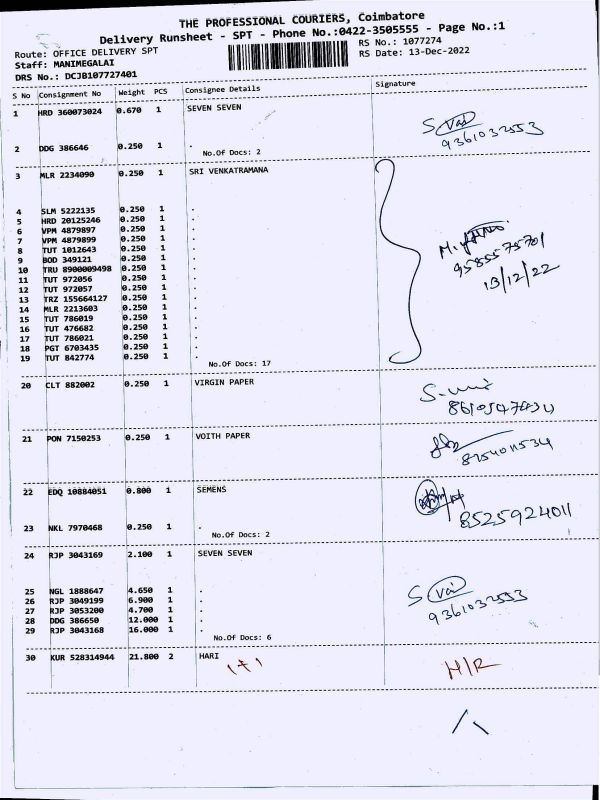 THE PROFESSIONAL COURIERS, Coimbatore
Delivery Runsheet - SPT - Phone No.:0422-3505555 - Page No.:1
Route: OFFICE DELIVERY SPT
RS No.: 1077274
Staff: MANIMEGALAI
RS Date: 13-Dec-2022
DRS No.: DCJB107727401
S No Consignment No Weight PCS Consignee Details Signature
1 HRD 360073024 0.670 1 SEVEN SEVEN
S Vai
9361032553
2 DDG 386646 0.250 1 .
No.Of Docs: 2
3 MLR 2234090 0.250 1 SRI VENKATRAMANA
4 SLM 5222135 0.250 1 .
5 HRD 20125246 0.250 1 .
6 VPM 4879897 0.250 1 .
7 VPM 4879899 0.250 1 .
8 TUT 1012643 0.250 1 .
9 BOD 349121 0.250 1 .
10 TRU 8900009498 0.250 1 .
11 TUT 972056 0.250 1 .
12 TUT 972057 0.250 1 .
13 TRZ 155664127 0.250 1 .
14 MLR 2213603 0.250 1 .
15 TUT 786019 0.250 1 .
16 TUT 476682 0.250 1 .
17 TUT 786021 0.250 1 .
18 PGT 6703435 0.250 1 .
19 TUT 842774 0.250 1 .
No.Of Docs: 17
9585575701
13/12/22
20 CLT 882002 0.250 1 VIRGIN PAPER
21 PON 7150253 0.250 1 VOITH PAPER
8254011534
22 EDQ 10884051 0.800 1 SEMENS
8525924011
23 NKL 7970468 0.250 1 .
No.Of Docs: 2
24 RJP 3043169 2.100 1 SEVEN SEVEN
25 NGL 1888647 4.650 1 .
26 RJP 3049199 6.900 1 .
27 RJP 3053200 4.700 1 .
28 DDG 386650 12.000 1 .
29 RJP 3043168 16.000 1 .
No.Of Docs: 6
S Vai
9361032553
30 KUR 528314944 21.800 2 HARI
H/R